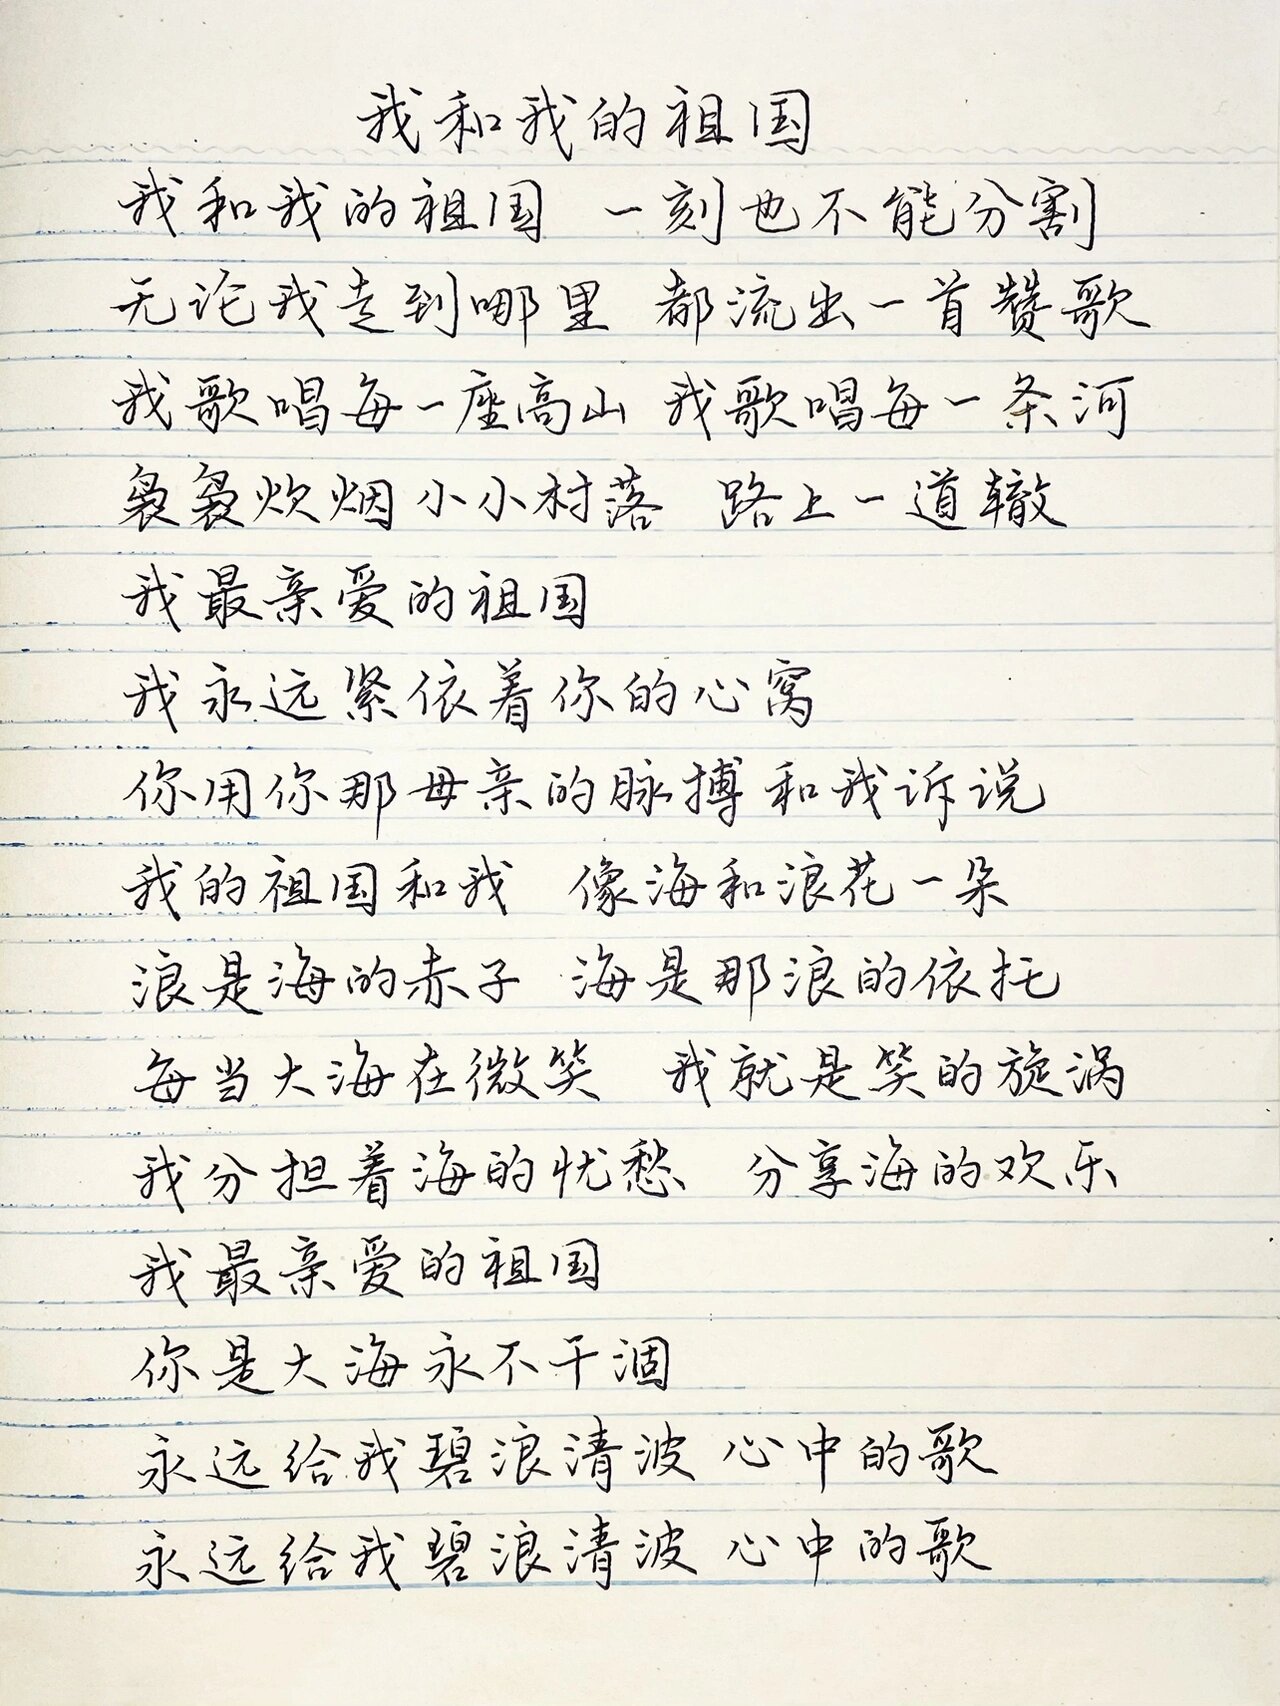 我和我的祖国
我和我的祖国 一刻也不能分割
无论我走到哪里 都流出一首赞歌
我歌唱每一座高山 我歌唱每一条河
袅袅炊烟小小村落 路上一道辙
我最亲爱的祖国
我永远紧依着你的心窝
你用你那母亲的脉搏和我诉说
我的祖国和我 像海和浪花一朵
浪是海的赤子 海是那浪的依托
每当大海在微笑 我就是笑的旋涡
我分担着海的忧愁 分享海的欢乐
我最亲爱的祖国
你是大海永不干涸
永远给我碧浪清波 心中的歌
永远给我碧浪清波 心中的歌